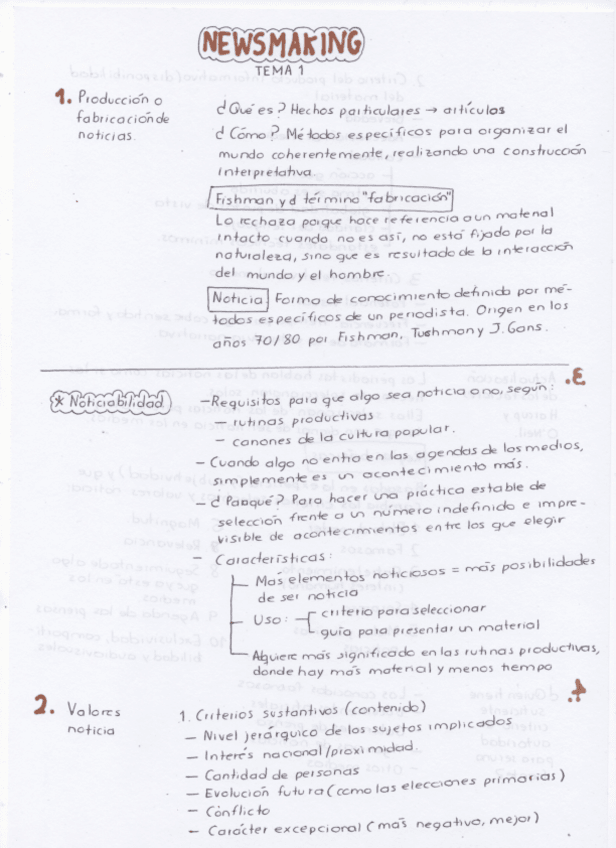 NEWSMAKING
TEMA 1
1. Producción o
fabricación de
noticias.
¿Qué es? Hechos particulares → artículos
¿Cómo? Métodos específicos para organizar el
mundo coherentemente, realizando una construcción
interpretativa.
Fishman y el término "fabricación"
Lo rechaza porque hace referencia a un material
intacto cuando no es así, no está fijado por la
naturaleza, sino que es resultado de la interacción
del mundo y el hombre.
Noticia Forma de conocimiento definido por mé-
todos específicos de un periodista. Origen en los
años 70/80 por Fishman, Tuchman y J. Gans.
* Noticiabilidad
- Requisitos para que algo sea noticia o no, según:
- rutinas productivas
- canones de la cultura popular.
- Cuando algo no entra en las agendas de los medios,
simplemente es un acontecimiento más.
- ¿Porqué? Para hacer una práctica estable de
selección frente a un número indefinido e impre-
visible de acontecimientos entre los que elegir
- Características:
Más elementos noticiosos = más posibilidades
de ser noticia
Uso: criterio para seleccionar
guía para presentar un material
Aquiere más significado en las rutinas productivas,
donde hay más material y menos tiempo
2. Valores
noticia
1. Criterios sustantivos (contenido)
- Nivel jerárquico de los sujetos implicados
- Interés nacional/proximidad.
- Cantidad de personas
- Evolución futura (como las elecciones primarias)
- Conflicto
- Carácter excepcional (más negativo, mejor)